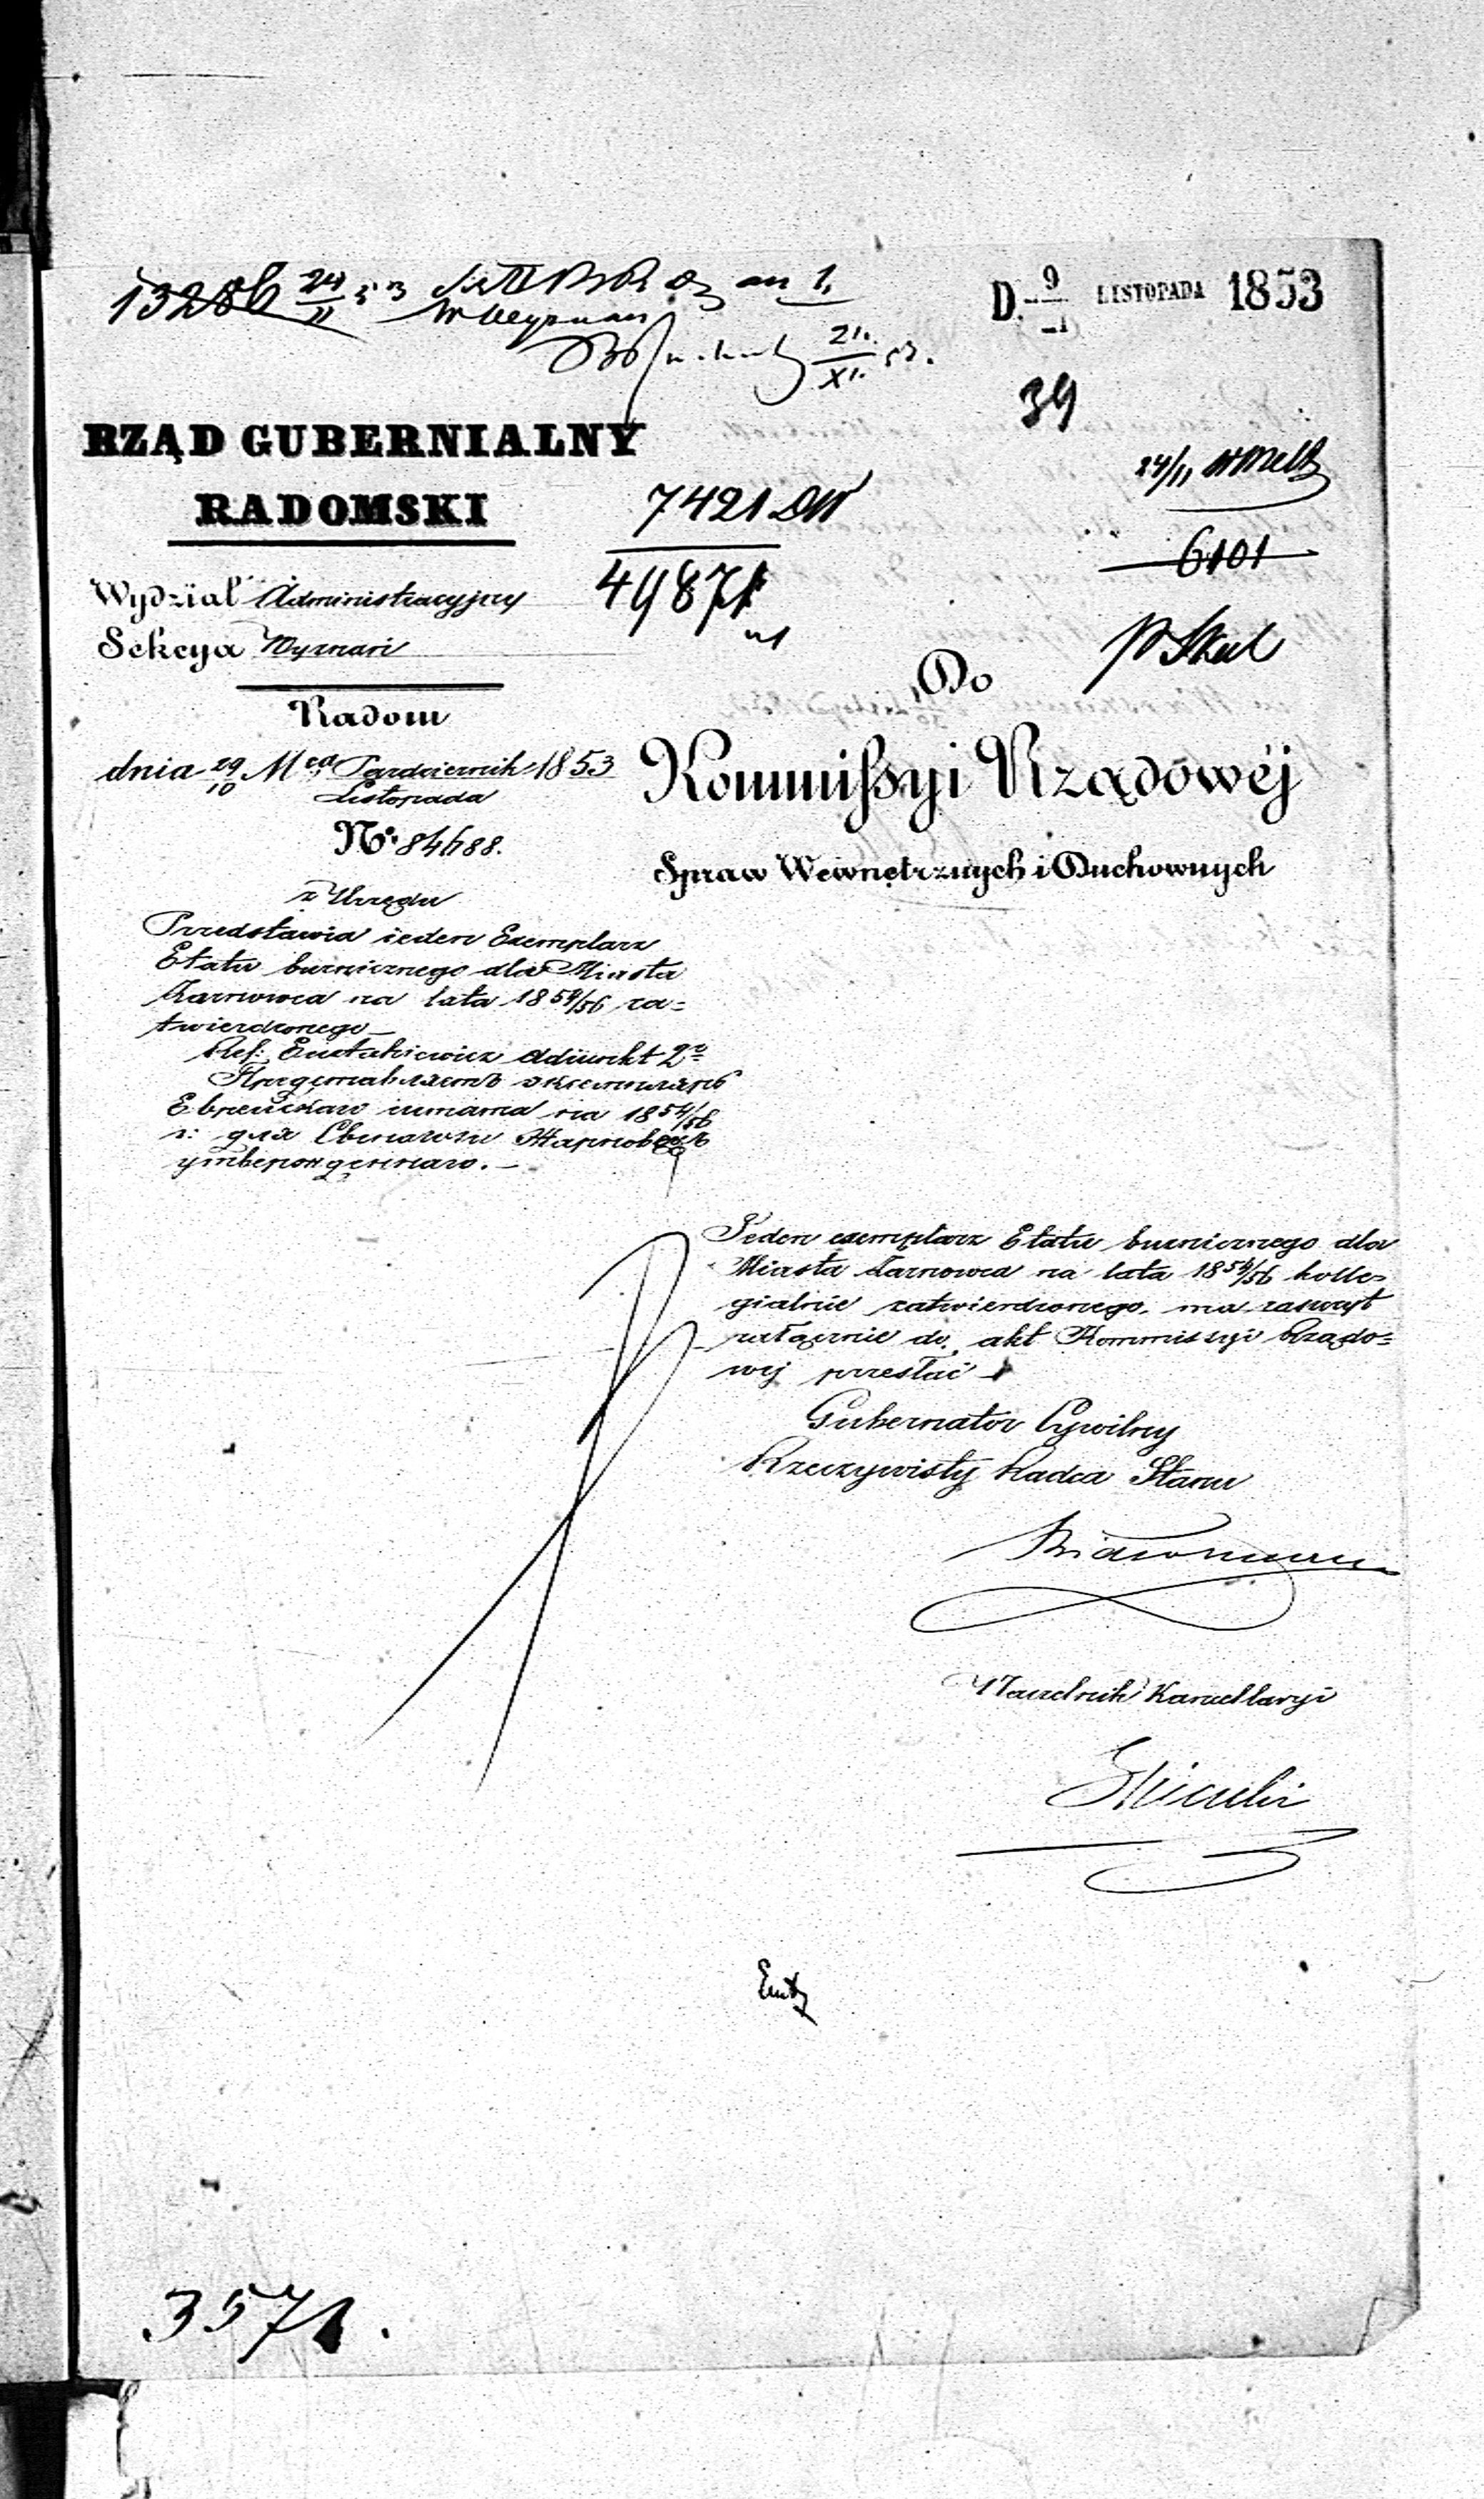 13286 24/11 53
D. 9/21 LISTOPADA 1853
39
RZĄD GUBERNIALNY
RADOMSKI
24/11
7421 DW
49871
6101
Wydział Administracyjny
Sekcya Wyznań
Do
Radom
dnia 29/10 Mca Październik 1853
Listopada
No 84688.
Kommissyi Rządowéj
Spraw Wewnętrznych i Duchownych
z Urzędu
Przedstawia ieden Exemplarz
Etatu buznicznego dla Miasta
Żarnowca na lata 1854/56 za=
twierdzonego
Ref: Eustachiewicz Adiunkt 2go
1854/56
утвержденнаго.
Jeden exemplarz Etatu buzniczn­ego dla
Miasta Żarnowca na lata 1854/56 kolle=
gialnie zatwierdzonego, ma zaszczyt
załącznie do akt Kommissyi Rządo=
wej przesłać
Gubernator Cywilny
Rzeczywisty Radca Stanu
Naczelnik Kancellaryi
3571.